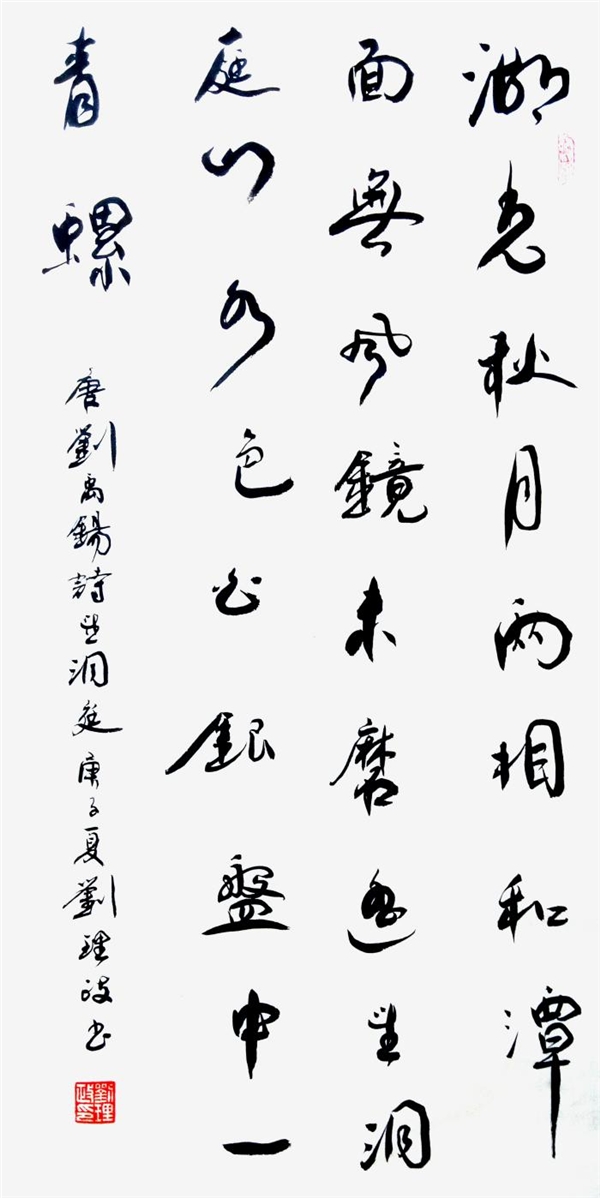 湖光秋月兩相和潭
面無風鏡未磨遙望洞
庭山水色白銀盤申一
青螺
唐劉禹錫詩望洞庭庚子夏劉理政書
劉理政印